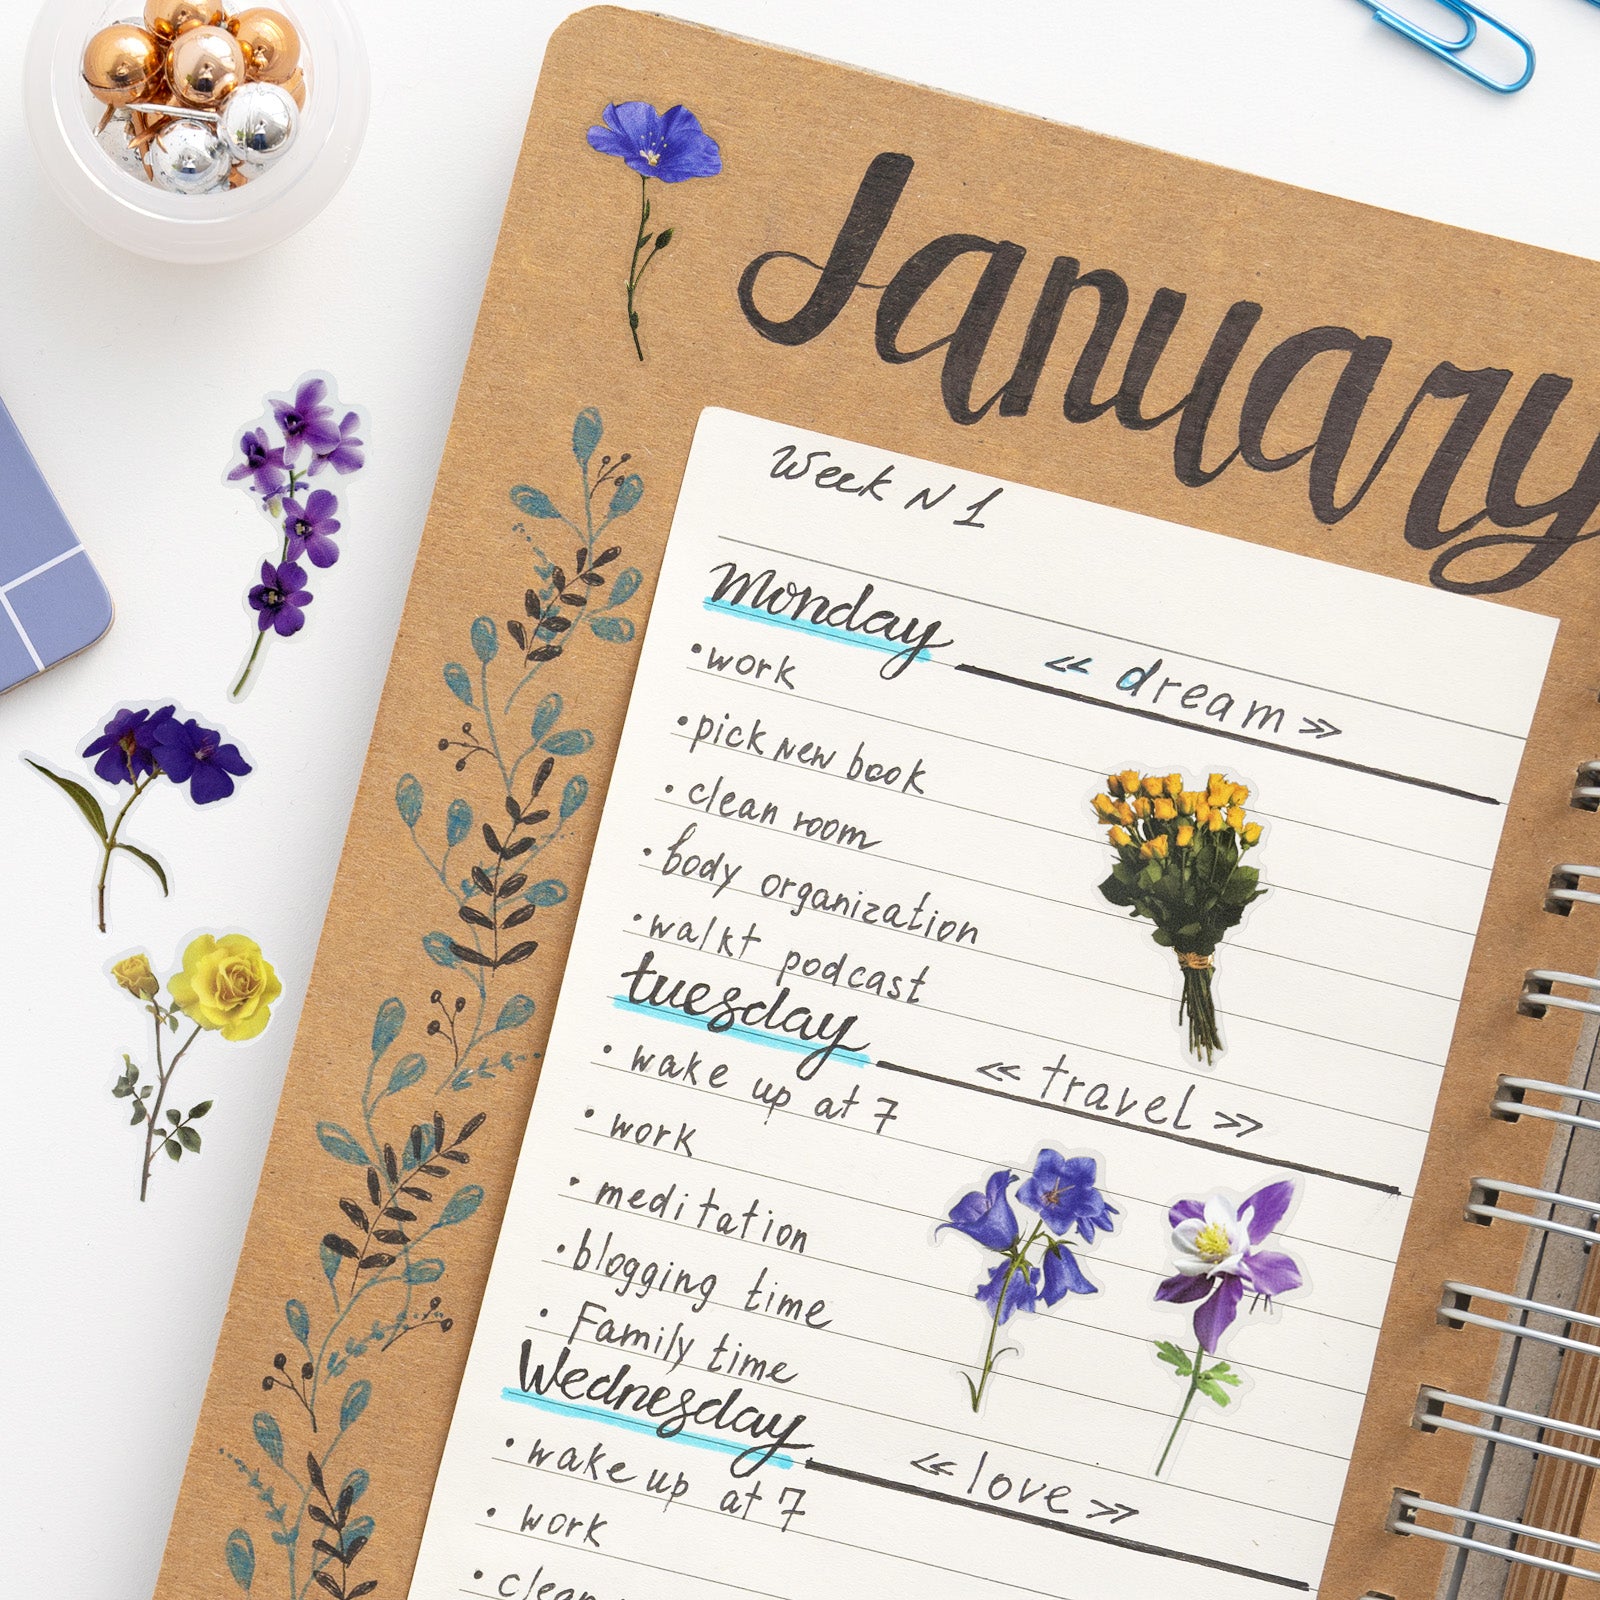 January
Week N 1
Monday
« dream »
• work
• pick new book
• clean room
• body organization
• walkt podcast
tuesday
« travel »
• wake up at 7
• work
• meditation
• blogging time
• Family time
Wednesday
« love »
• wake up at 7
• work
• clean